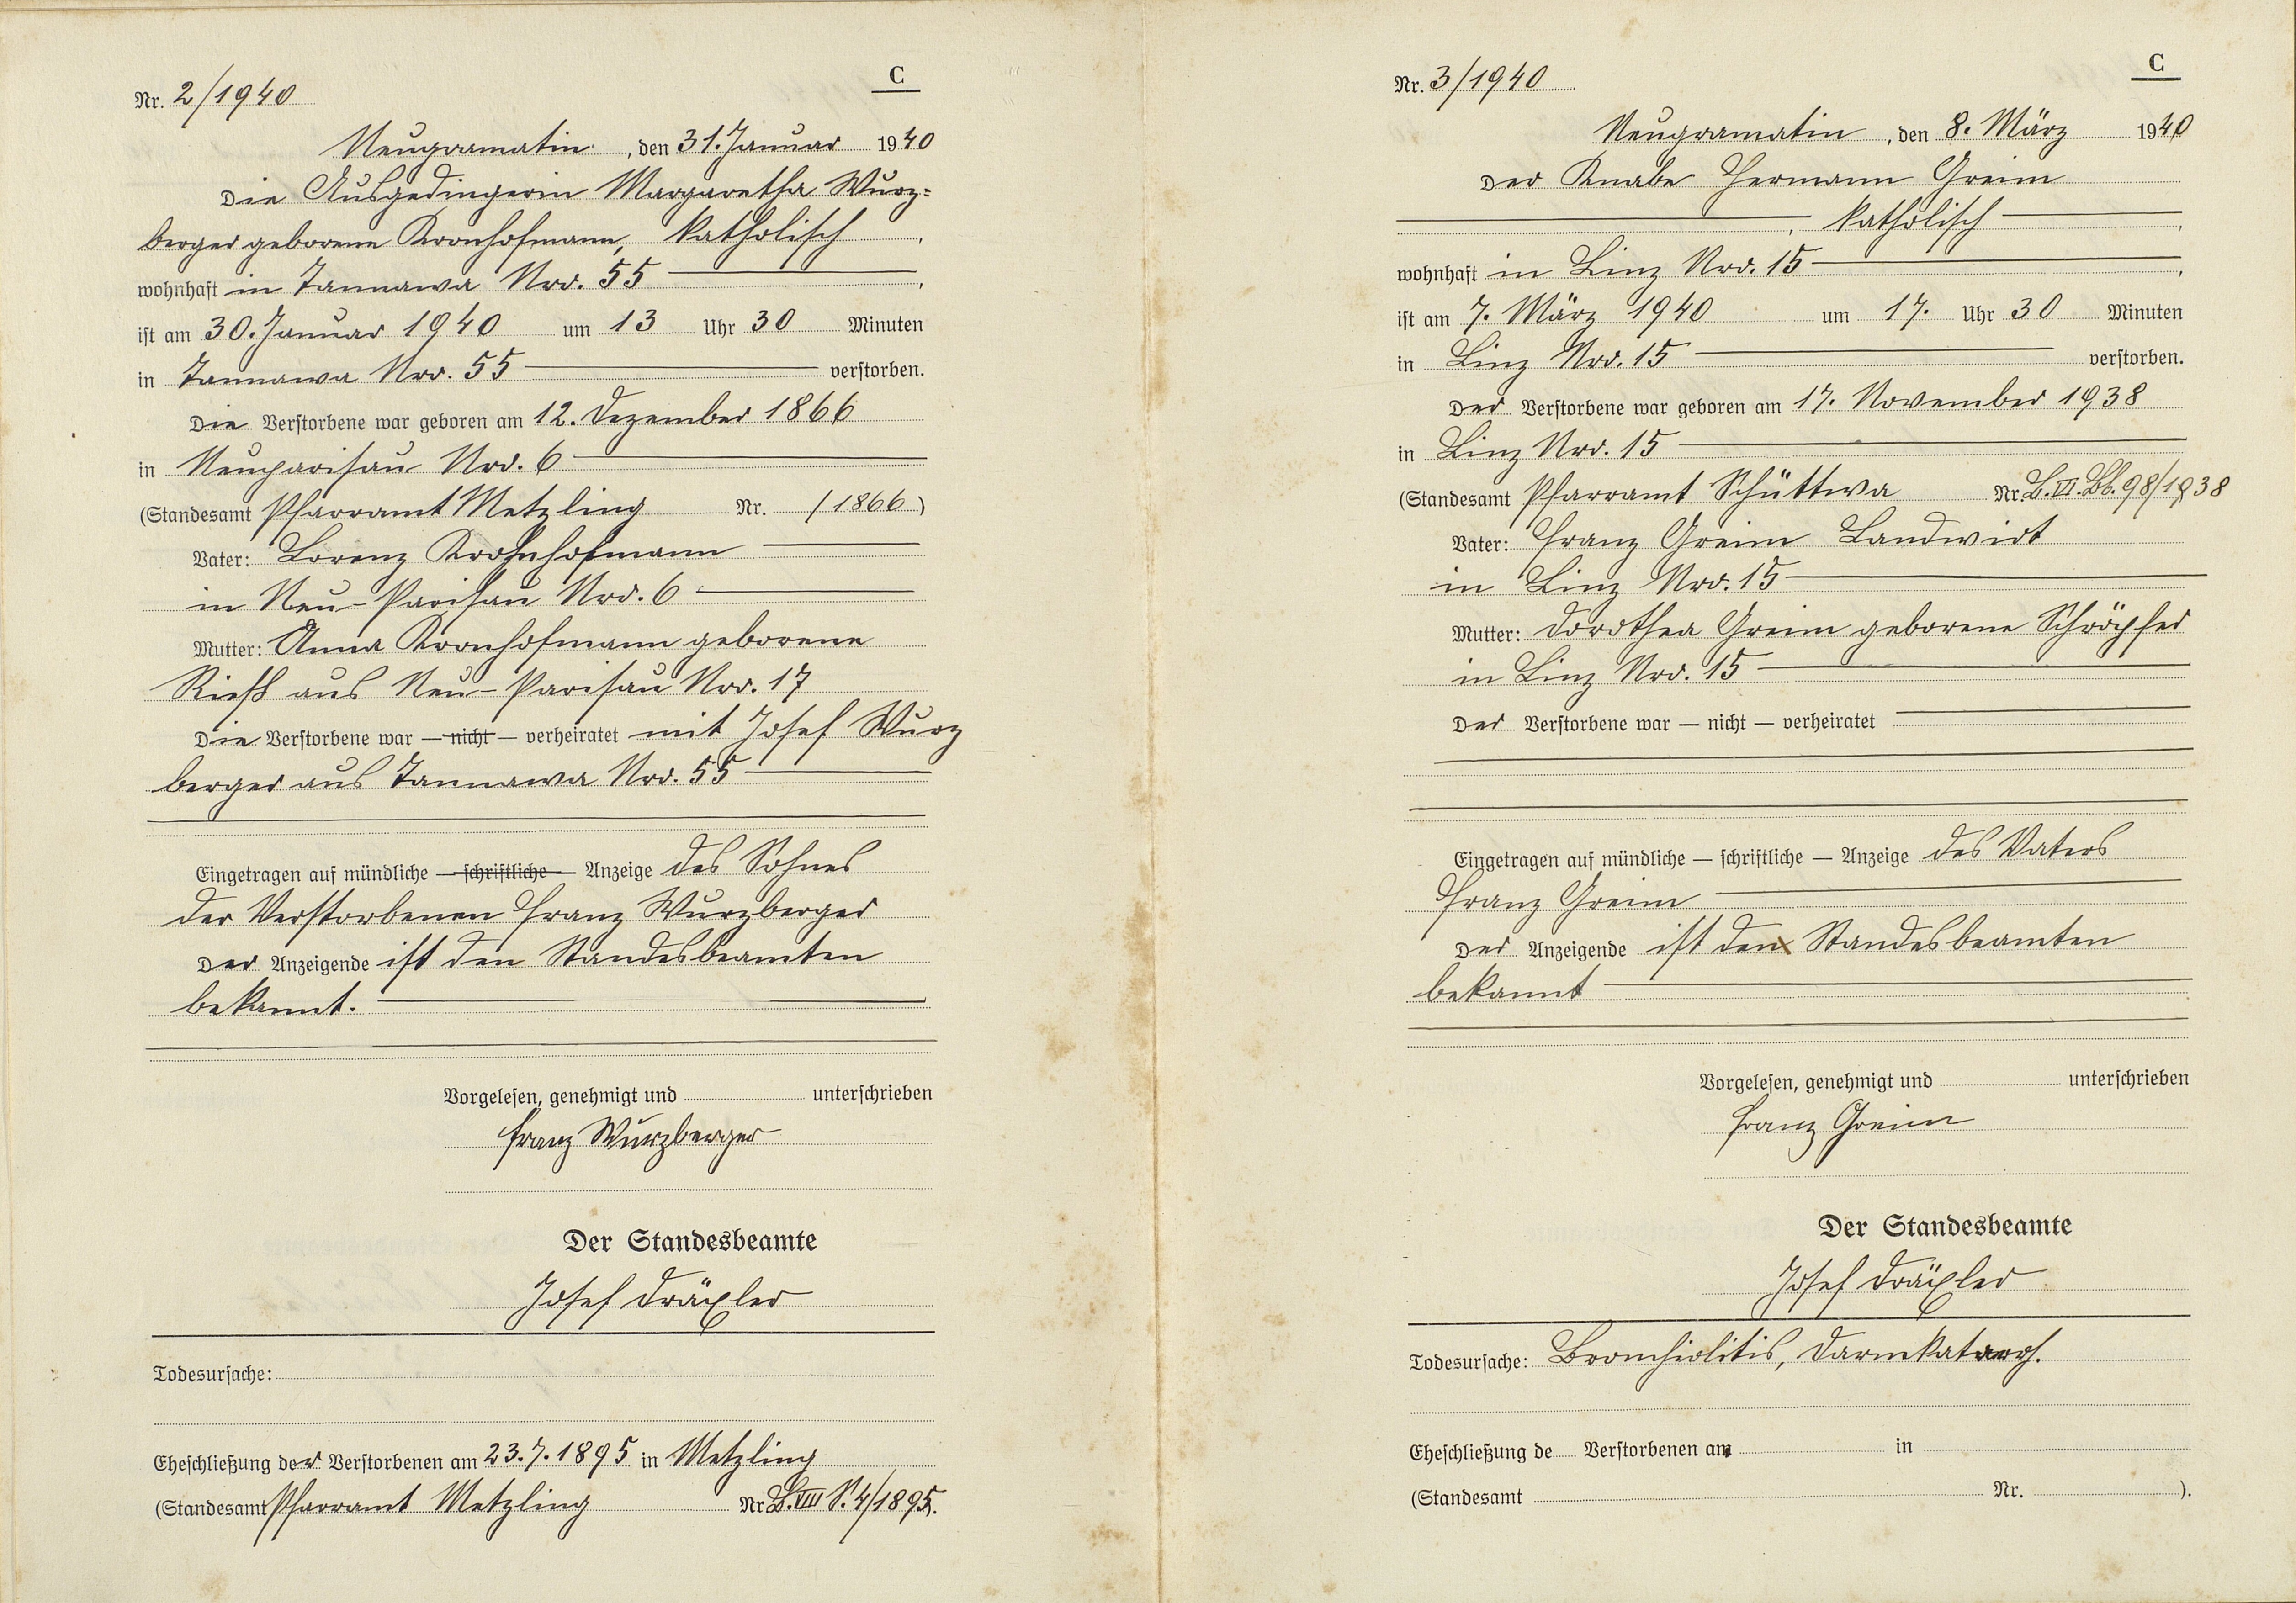 C
Nr. 2/1940
Neugramatin, den 31. Januar 1940
Die Ausgedingerin Margaretha Wurz=
berger geborene Kronhofmann, katholisch,
wohnhaft in Tannawa Nro. 55,
ist am 30. Januar 1940 um 13 Uhr 30 Minuten
in Tannawa Nro. 55 verstorben.
Die Verstorbene war geboren am 12. Dezember 1866
in Neuparisau Nro. 6
(Standesamt Pfarramt Metzling Nr. /1866)
Vater: Lorenz Krohnhofmann
in Neu-Parisau Nro. 6
Mutter: Anna Kronhofmann geborene
Rieß aus Neu-Parisau Nro. 17
Die Verstorbene war — nicht — verheiratet mit Josef Wurz
berger aus Tannawa Nro. 55
Eingetragen auf mündliche — schriftliche — Anzeige des Sohnes
der Verstorbenen Franz Wurzberger
Der Anzeigende ist den Standesbeamten
bekannt.
Vorgelesen, genehmigt und unterschrieben
Franz Wurzberger
Der Standesbeamte
Josef Dräxler
Todesursache:
Eheschließung der Verstorbenen am 23.7.1895 in Metzling
(Standesamt Pfarramt Metzling Nr. B. VIII S. 4/1895).
C
Nr. 3/1940
Neugramatin, den 8. März 1940
Der Knabe Hermann Greim
, katholisch,
wohnhaft in Linz Nro. 15,
ist am 7. März 1940 um 17. Uhr 30 Minuten
in Linz Nro. 15 verstorben.
Der Verstorbene war geboren am 17. November 1938
in Linz Nro. 15
(Standesamt Pfarramt Schüttwa Nr. B. VI. Bl. 98/1938
Vater: Franz Greim Landwirt
in Linz Nro. 15
Mutter: Dorothea Greim geborene Schröpfer
in Linz Nro. 15
Der Verstorbene war — nicht — verheiratet
Eingetragen auf mündliche — schriftliche — Anzeige des Vaters
Franz Greim
Der Anzeigende ist den Standesbeamten
bekannt
Vorgelesen, genehmigt und unterschrieben
Franz Greim
Der Standesbeamte
Josef Dräxler
Todesursache: Bronchiolitis, Darmkatarrh.
Eheschließung de Verstorbenen am in
(Standesamt Nr. ).